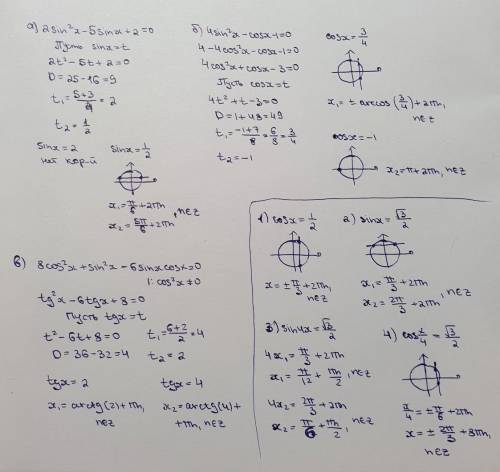 а) 2sin²x - 5sinx + 2 = 0
Пусть sinx = t
2t² - 5t + 2 = 0
D = 25 - 16 = 9
t₁ = (5+3)/4 = 2
t₂ = 1/2
sinx = 2
нет кор-й
sinx = 1/2
x₁ = π/6 + 2πn
x₂ = 5π/6 + 2πn
, n∈Z
б) 4sin²x - cosx - 1 = 0
4 - 4cos²x - cosx - 1 = 0
4cos²x + cosx - 3 = 0
Пусть cosx = t
4t² + t - 3 = 0
D = 1 + 48 = 49
t₁ = (-1+7)/8 = 6/8 = 3/4
t₂ = -1
cosx = 3/4
x₁ = ± arccos(3/4) + 2πn,
n∈Z
cosx = -1
x₂ = π + 2πn, n∈Z
в) 8cos²x + sin²x - 6sinxcosx = 0
|: cos²x ≠ 0
tg²x - 6tgx + 8 = 0
Пусть tgx = t
t² - 6t + 8 = 0
D = 36 - 32 = 4
t₁ = (6+2)/2 = 4
t₂ = 2
tgx = 2
x₁ = arctg(2) + πn,
n∈Z
tgx = 4
x₂ = arctg(4) +
+ πn, n∈Z
1) cosx = 1/2
x = ± π/3 + 2πn,
n∈Z
2) sinx = √3/2
x₁ = π/3 + 2πn
x₂ = 2π/3 + 2πn
, n∈Z
3) sin4x = √3/2
4x₁ = π/3 + 2πn
x₁ = π/12 + πn/2, n∈Z
4x₂ = 2π/3 + 2πn
x₂ = π/6 + πn/2, n∈Z
4) cos x/4 = √3/2
x/4 = ± π/6 + 2πn
x = ± 2π/3 + 8πn,
n∈Z